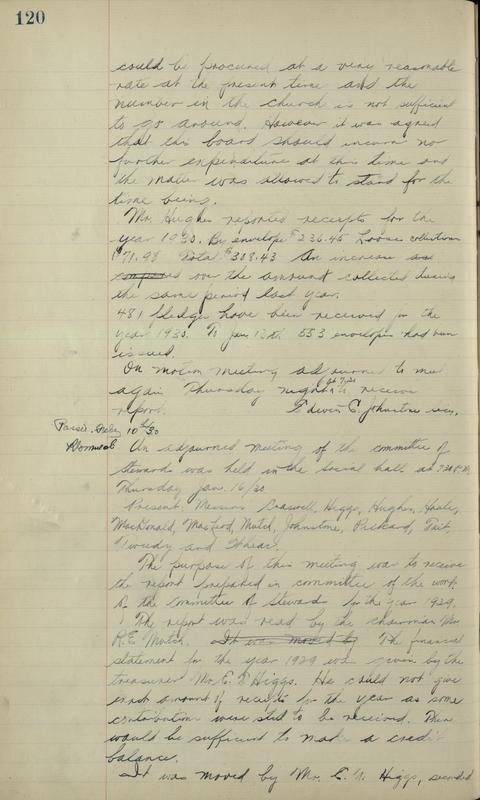 120
could be procured at a very reasonable
rate at the present time and the
number in the church is not sufficient
to go around. However it was agreed
that this board should incurr no
further expenditure at this time and
the matter was allowed to stand for the
time being.
Mr. Hughes reported receipts for the
year 1930. By envelope $236.45 Loose collections
$71.98 Total $308.43 An increase as
compared over the amount collected during
the same period last year.
481 Pledges have been received for the
year 1930. To Jan. 13th 553 envelopes had been
issued.
On motion meeting adjourned to meet
again Thursday night at 7.30 to receive
report. Edwin C. Johnstone Sec.
10th/30
An adjourned meeting of the committee of
Stewards was held in the Social hall at 7.30 P.M.
Thursday Jan. 16/30
Present. Messrs Braswell, Higgs, Hughes,
MacDonald, MacLeod, Mutch, Johnstone, Pickard, Tait,
Tweedy and
The purpose of this meeting was to receive
the report prepared in committee of the work
of the Committee of Stewards for the year 1929.
The report was read by the chairman Mr
R.E. Mutch. It was moved by The financial
statement for the year 1929 was given by the
treasurer Mr. E. T. Higgs. He could not give
exact amount of receipts for the year as some
contributions were still to be received. There
would be sufficient to make a credit
balance.
It was moved by Mr. E. T. Higgs, seconded